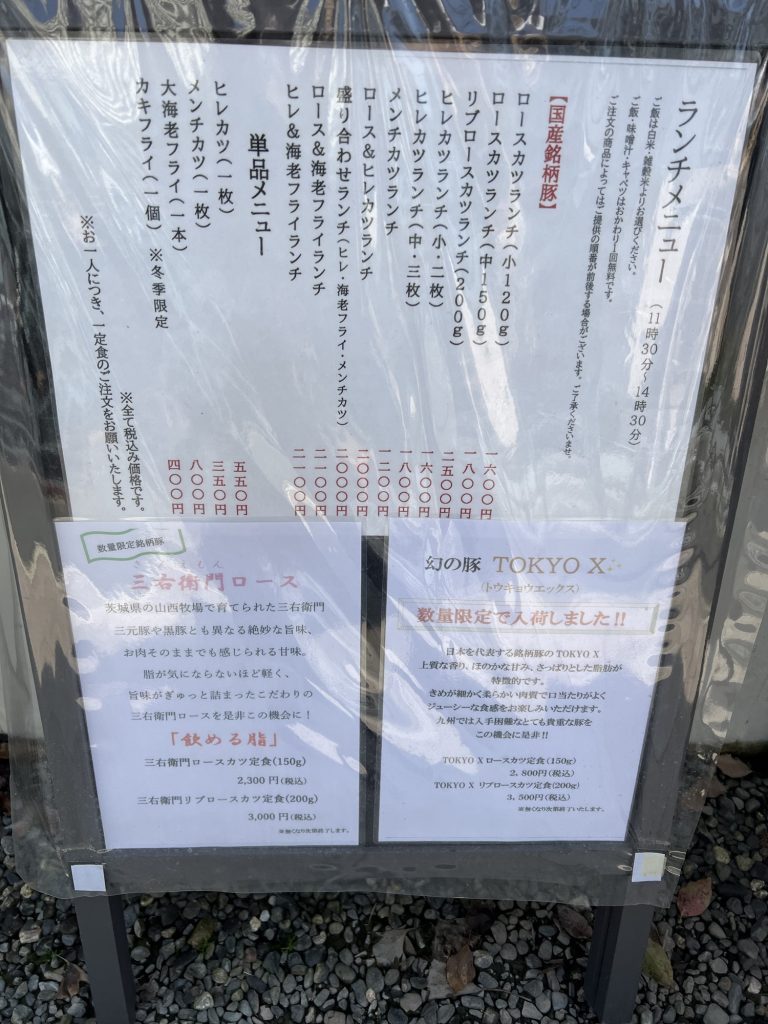 ランチメニュー(11時30分~14時30分)
ご飯は白米・雑穀米よりお選びください。
ご飯・味噌汁・キャベツはおかわり一回無料です。
ご注文の商品によってはご提供の順番が前後する場合がございます。ご了承くださいませ。
【国産銘柄豚】
ロースカツランチ(小120g) 一六〇〇円
ロースカツランチ(中150g) 一八〇〇円
リブロースカツランチ(200g) 二五〇〇円
ヒレカツランチ(小・二枚) 一六〇〇円
ヒレカツランチ(中・三枚) 一八〇〇円
メンチカツランチ 一二〇〇円
ロース&ヒレカツランチ 二〇〇〇円
盛り合わせランチ(ヒレ・海老フライ・メンチカツ) 二〇〇〇円
ロース&海老フライランチ 二一〇〇円
ヒレ&海老フライランチ 二一〇〇円
単品メニュー
ヒレカツ(一枚) 五五〇円
メンチカツ(一枚) 三五〇円
大海老フライ(一本) 八〇〇円
カキフライ(一個) ※冬季限定 四〇〇円
※全て税込み価格です。
※お一人につき、一定食のご注文をお願いいたします。
数量限定銘柄豚
さんえもん
三右衛門ロース
茨城県の山西牧場で育てられた三右衛門
三元豚や黒豚とも異なる絶妙な旨味、
お肉そのままでも感じられる甘味。
脂が気にならないほど軽く、
旨味がぎゅっと詰まったこだわりの
三右衛門ロースを是非この機会に!
「飲める脂」
三右衛門ロースカツ定食(150g)
2,300円(税込)
三右衛門リブロースカツ定食(200g)
3,000円(税込)
※無くなり次第終了します。
幻の豚 TOKYO X
(トウキョウエックス)
数量限定で入荷しました!!
日本を代表する銘柄豚のTOKYO X
上質な香り、ほのかな甘み、さっぱりとした脂肪が
特徴的です。
きめが細かく柔らかい肉質で口当たりがよく
ジューシーな食感をお楽しみいただけます。
九州では入手困難なとても貴重な豚を
この機会に是非!!
TOKYO Xロースカツ定食(150g)
2,800円(税込)
TOKYO X リブロースカツ定食(200g)
3,500円(税込)
※無くなり次第終了いたします。